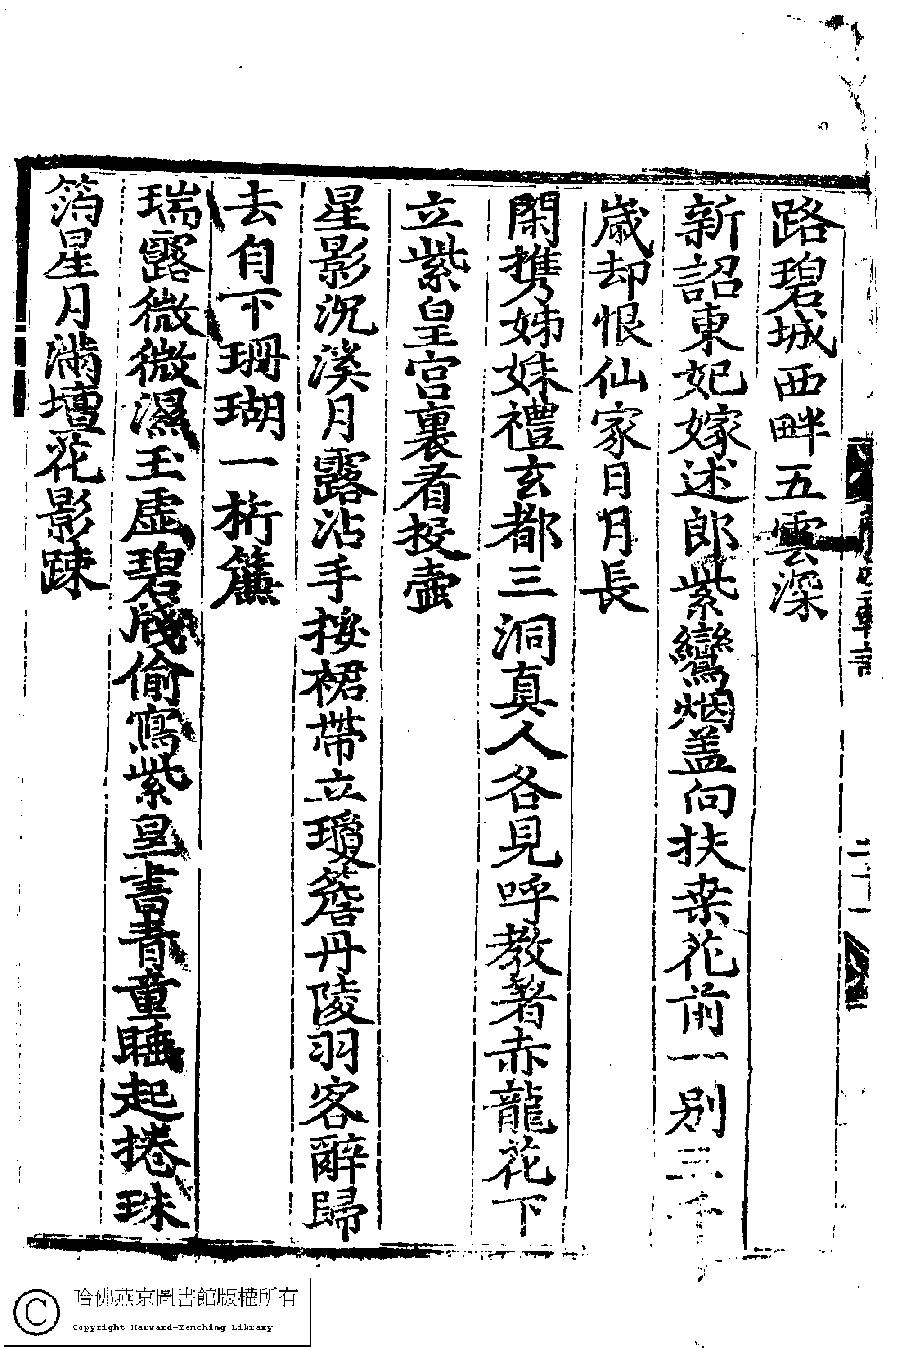 路碧城西畔五雲深
新詔東妃嫁述郎紫鸞烟盖向扶桒花前一別三千
歳却恨仙家日月長
閑携姊妹禮玄都三洞真人各見呼教著赤龍花下
立紫皇宫裏看投壷
星影沉溪月露沾手挼裙帶立瓊簷丹陵羽客辭歸
去自下珊瑚一桁簾
瑞露微微濕玉虛碧牋偷寫紫皇書青童睡起捲珠
箔星月滿壇花影踈
二十一
哈佛燕京圖書館版權所有
Copyright Harvard-Yenching Library